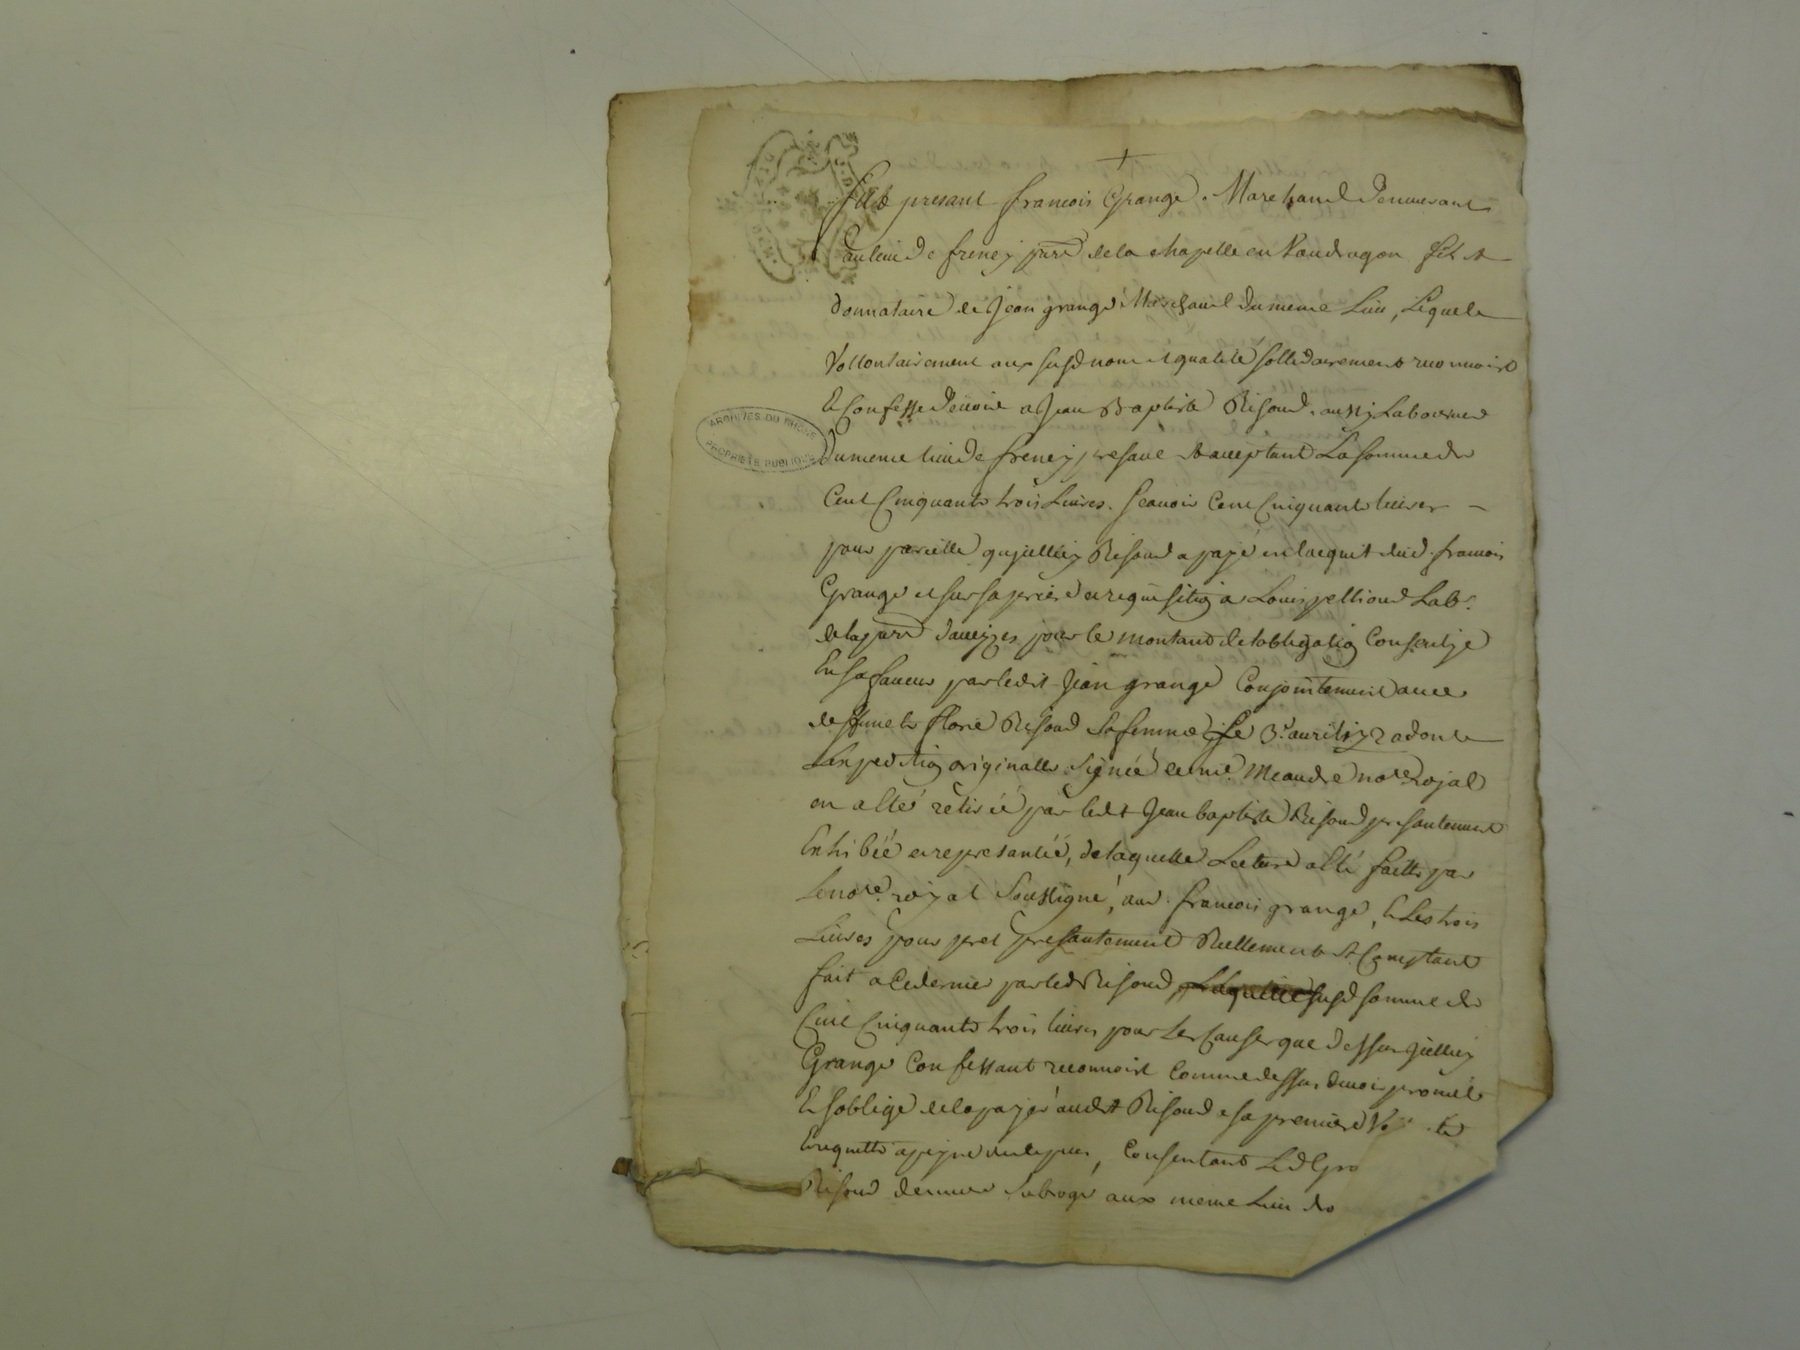 +
fut présant françois Grange. Marchand demeurant
au lieu de freney parr. de la chapelle en Vaudragon fils et
donnataire de Jean grange Marchand du meme Lieu, Lequel
Vollontairement aux susd nom et qualité sollidairement reconnoist
Et Confesse devoir a Jean Baptiste Risoud. aussy Laboureur
ARCHIVES DU RHÔNE
PROPRIÉTÉ PUBLIQUE
Du meme lieu de freney, présant et acceptant La somme de
Cent Cinquante trois Livres. Scavoir Cent Cinquante livres
pour pareille qu'jcelluy Risoud a payé en lacquit dud. françois
Grange et sur sa prière et requisition a Louis pellioud Labr.
de la parr d'aveizes pour le montant de lobligation Consentye
En sa faveur par ledit Jean grange Conjointement avec
deffunte florie Risoud sa femme le 3e avril 1772 dont
Lexpedition originalle signée dud me. Meaudre nore Royal
en a été retirée par ledt Jean baptiste Risoud présantement
Exhibée et representée, de laquelle Lecture a été faitte par
Le nore. royal Soussigné, aud. francois grange, Et Les trois
Livres pour pret présantement Réellement et Comptant
fait a Ce dernier par led Risoud, susd somme de
Cent Cinquante trois livres pour Les Causes que dessus jcelluy
Grange Confessant reconnoist Comme dessus devoir promet
Et soblige de la payer audt Risoud a sa première
Enquette a peyne de depens, Consentant Led Gra
Risoud demeure subrogé aux meme Lieu